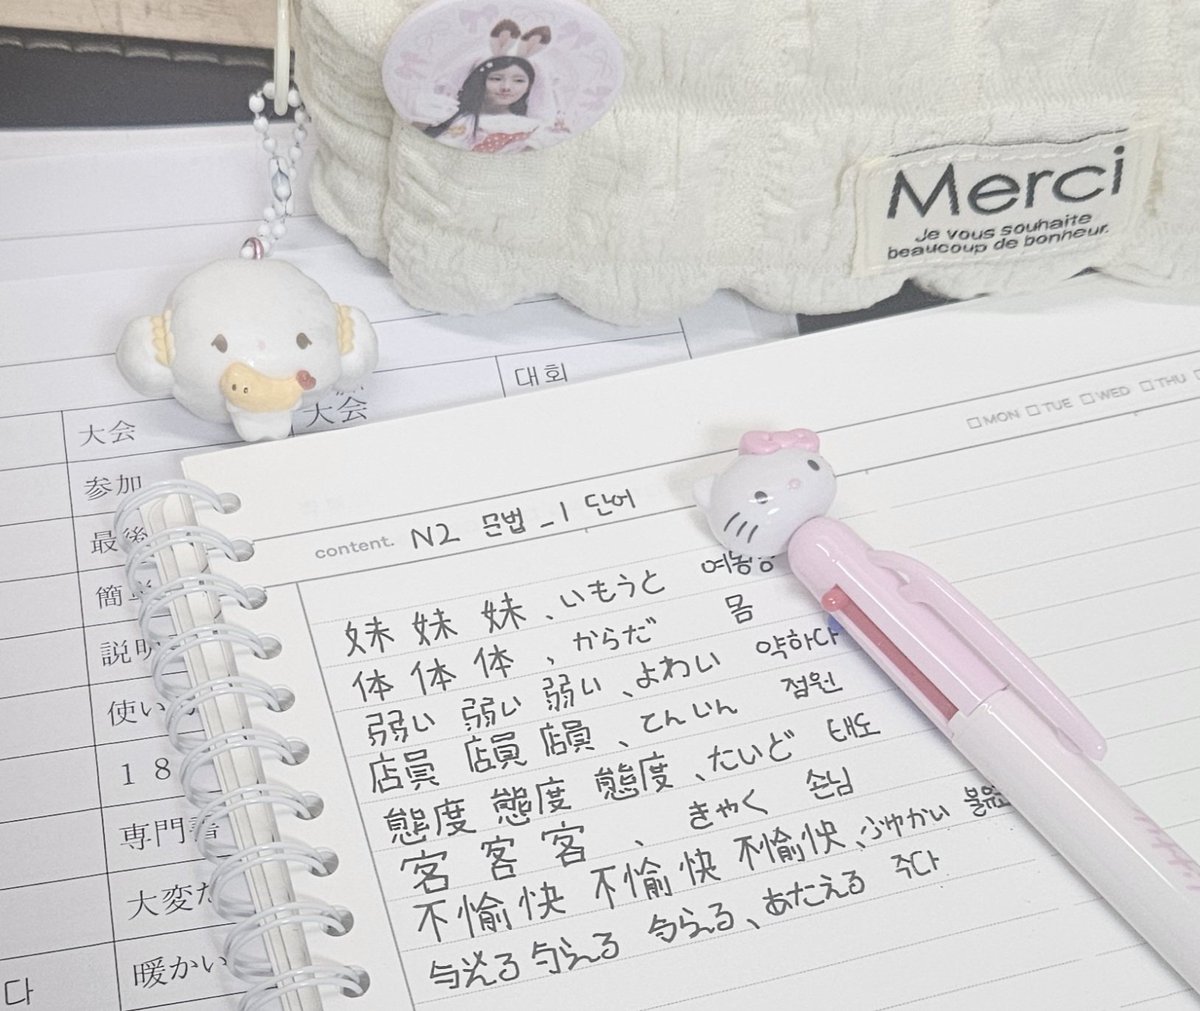 Merci
Je vous souhaite
beaucoup de bonheur.
대회
大会 大会
参加
最後
簡単
説明
使い
18
専門書
大変だ
暖かい
다
MON TUE WED THU
content. N2 문법_1 단어
妹 妹 妹、いもうと 여동생
体 体 体、からだ 몸
弱い 弱い 弱い、よわい 약하다
店員 店員 店員、てんいん 점원
態度 態度 態度、たいど 태도
客 客 客、きゃく 손님
不愉快 不愉快 不愉快、ふゆかい 불쾌
与える 与える 与える、あたえる 주다